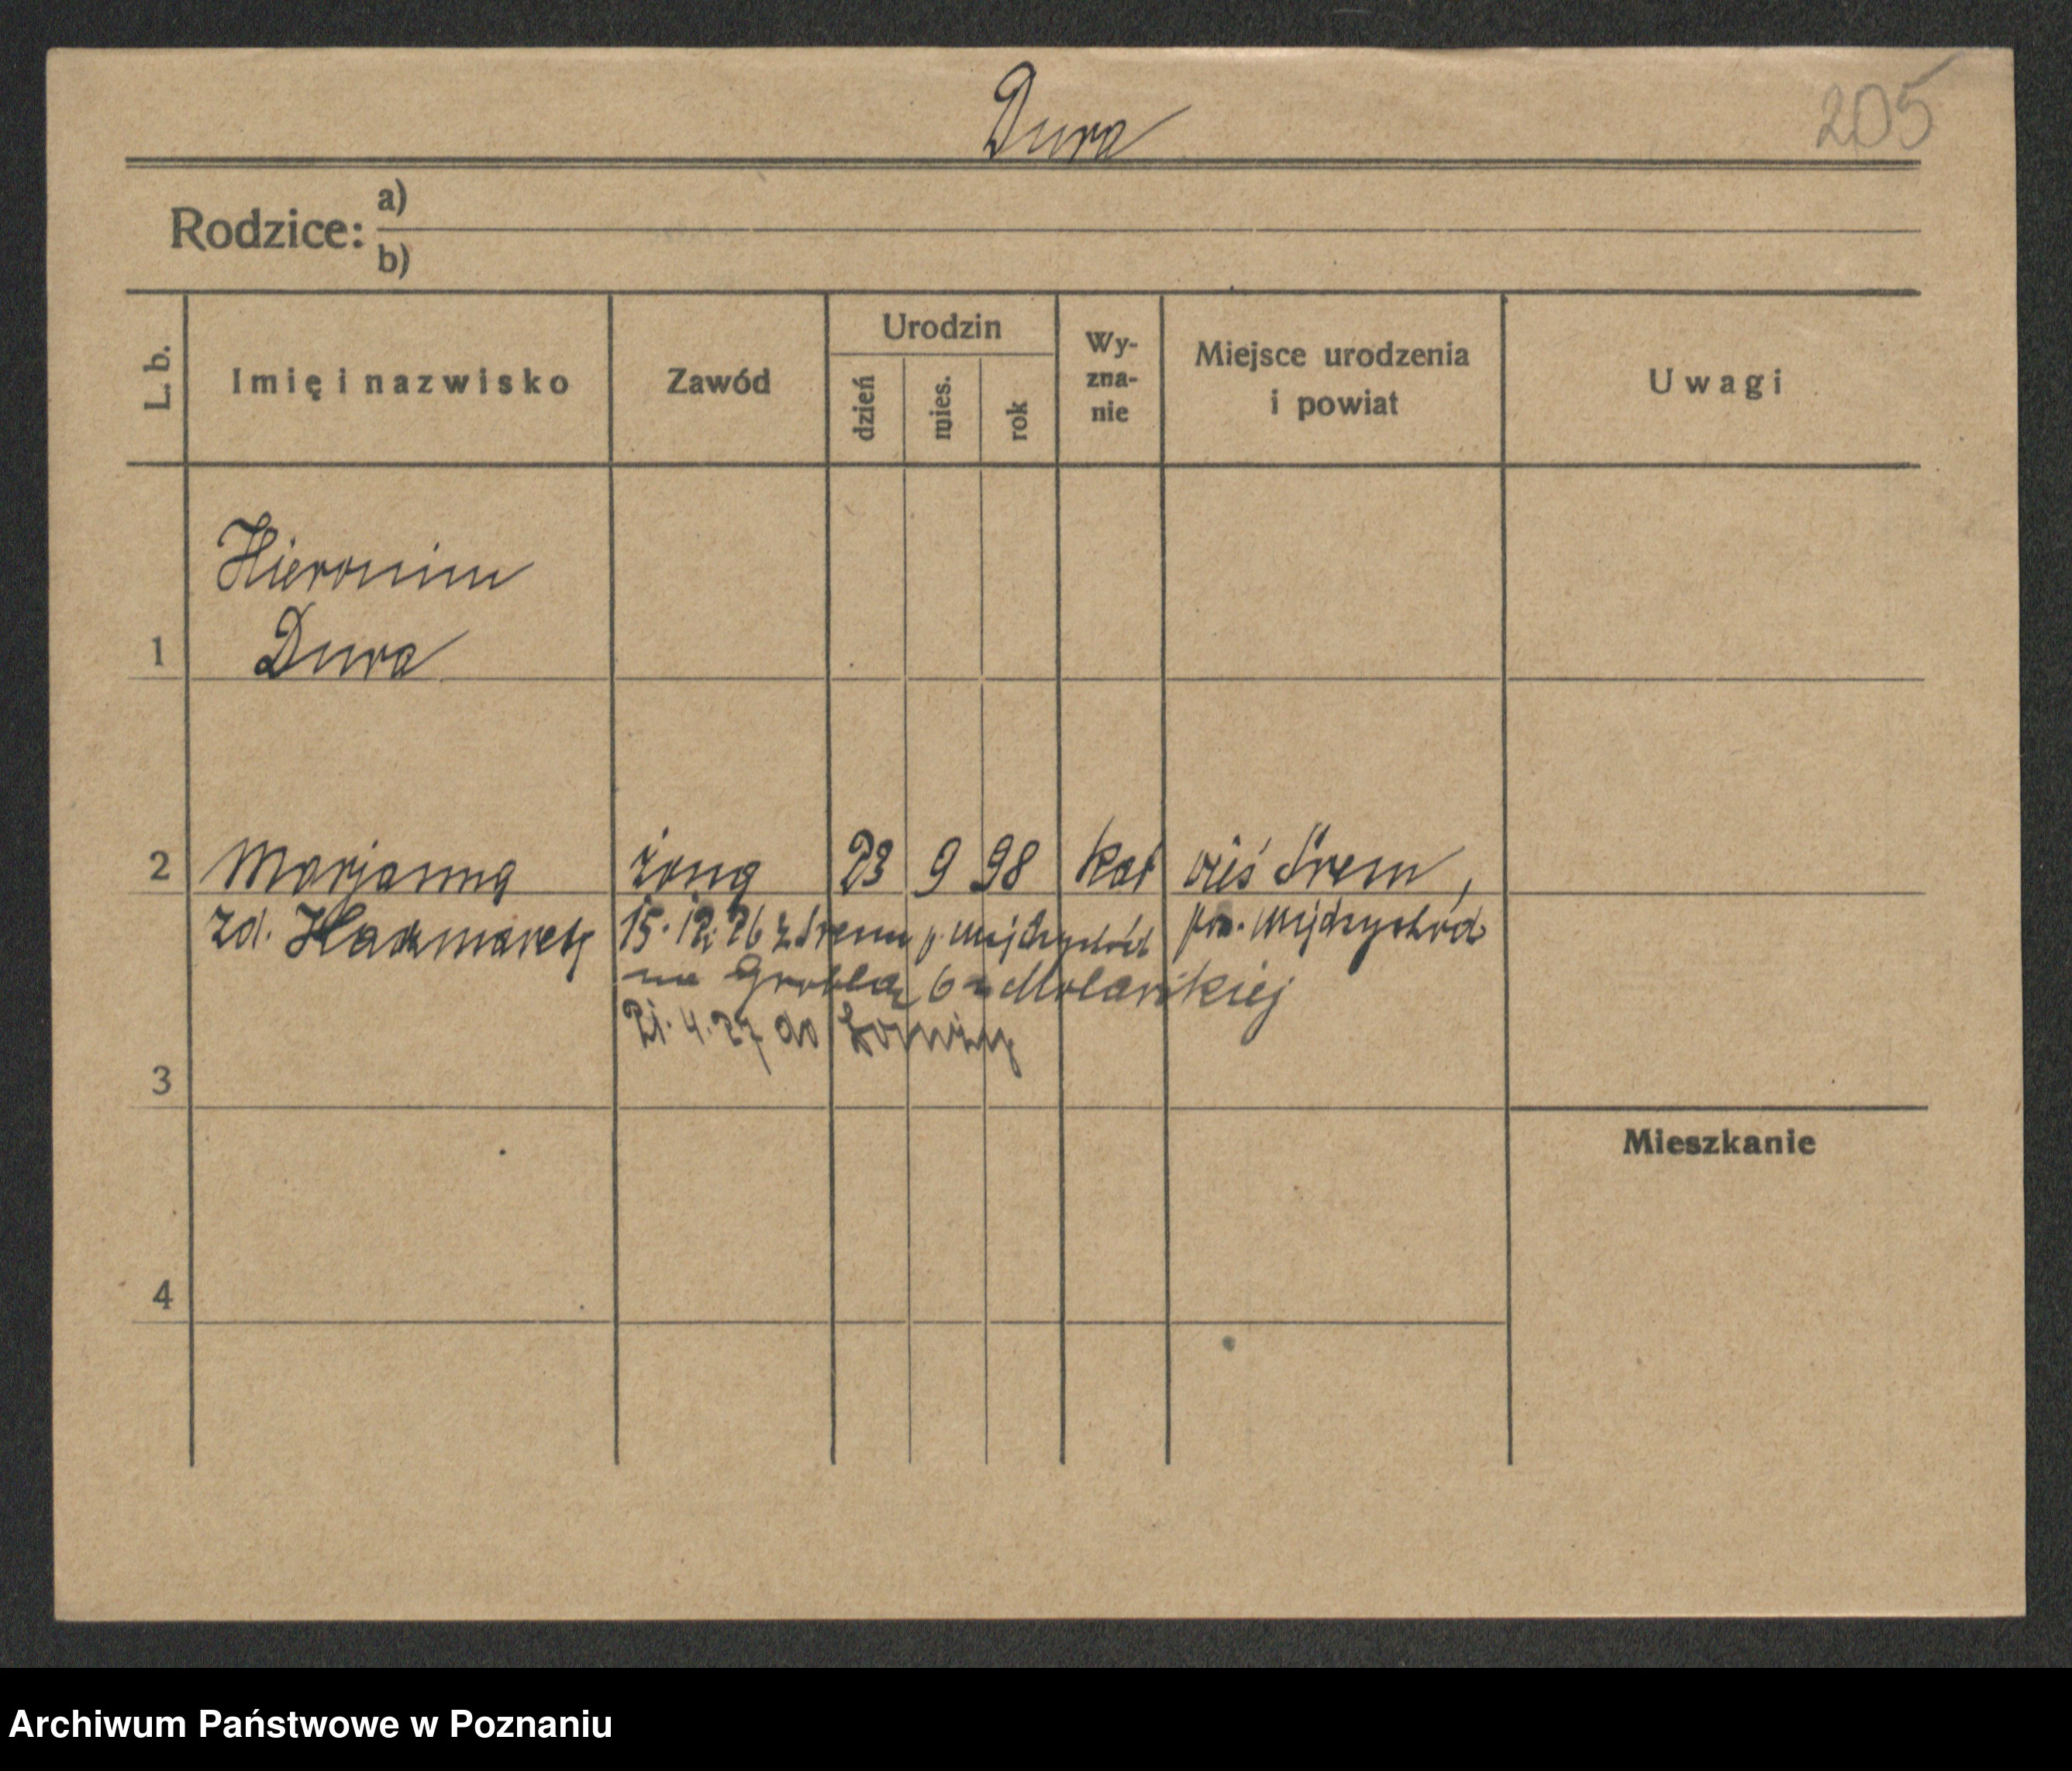 Dura
205
Rodzice: a)
b)
L. b. Imię i nazwisko Zawód Urodzin dzień mies. rok Wyzna-nie Miejsce urodzenia i powiat Uwagi
Hieronim
1 Dura
2 Marjanna żona 23 9 98 kat wieś Śrem,
zd. Kaczmarek 15. 12. 26 z Śremu p. Międzychód pow. Międzychód
na Grobla 6 u Molańskiej
21. 4. 27 do
3
Mieszkanie
4
Archiwum Państwowe w Poznaniu